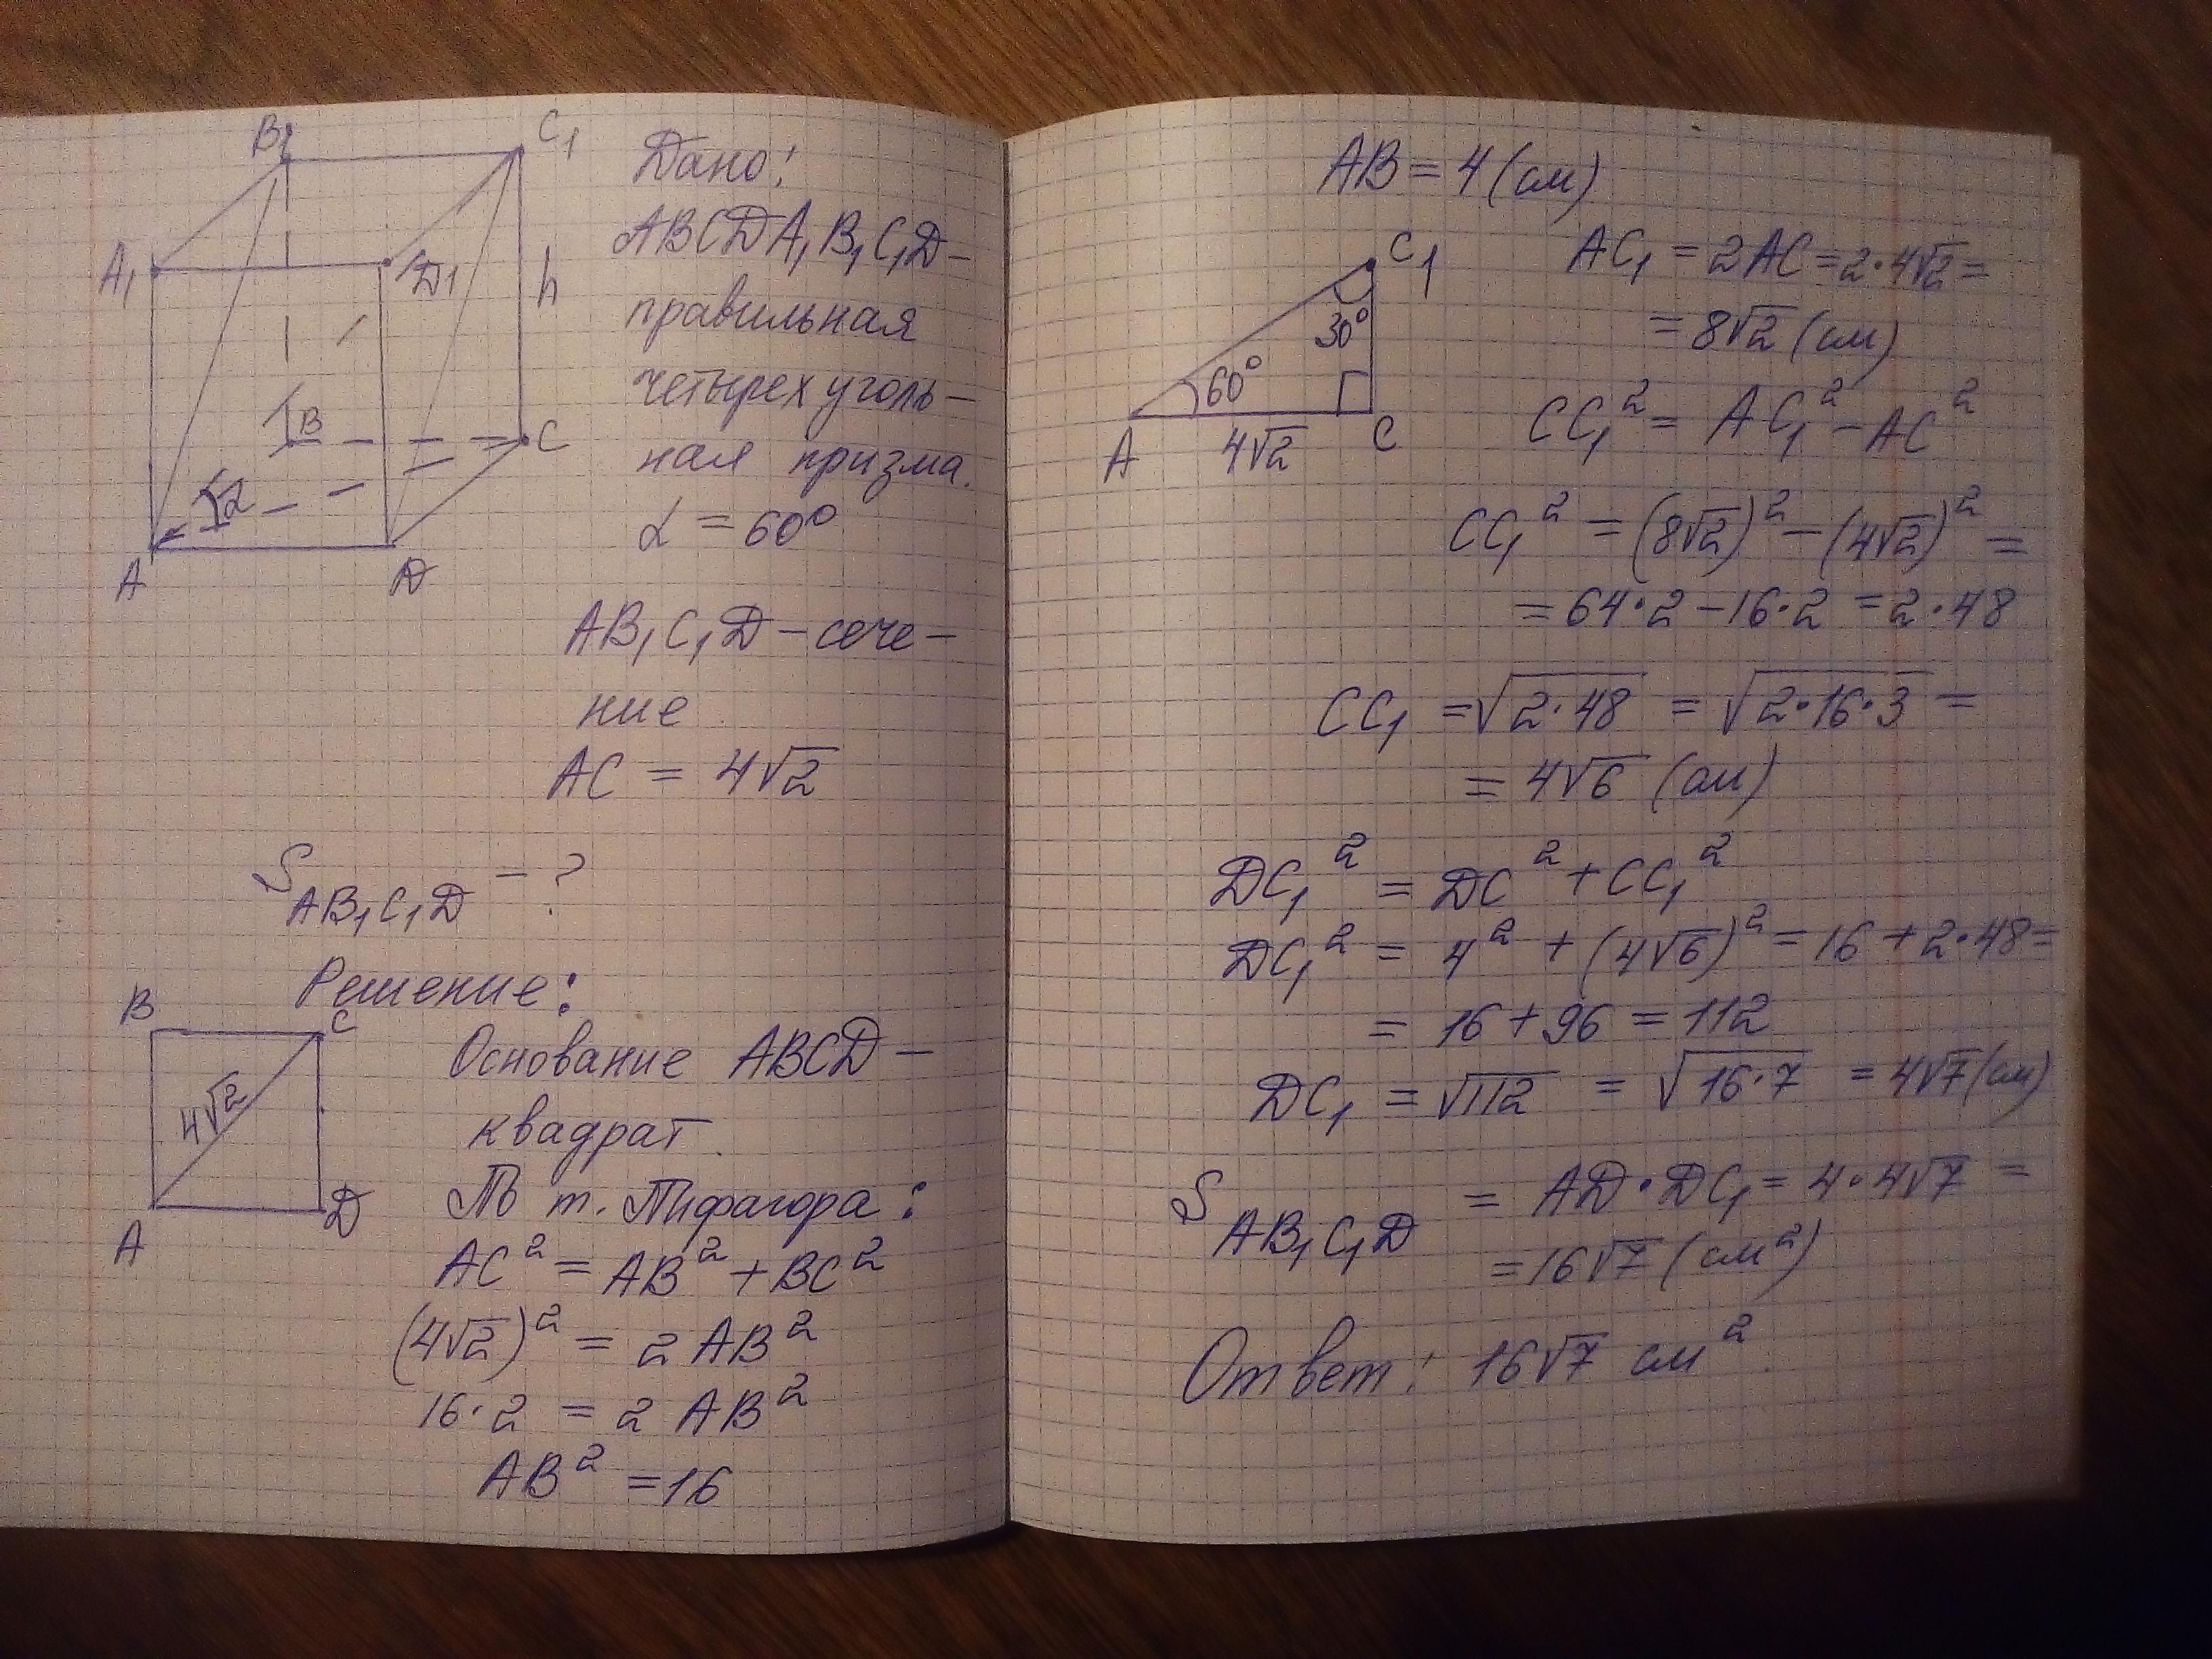 B1
C1
A1
D1
h
B
C
α
A
D
Дано:
ABCDA₁B₁C₁D –
правильная
четырех уголь–
ная призма.
α = 60°
AB₁C₁D – сече–
ние
AC = 4√2
S AB₁C₁D – ?
Решение:
B
C
4√2
A
D
Основание ABCD –
квадрат.
По т. Пифагора:
AC² = AB² + BC²
(4√2)² = 2 AB²
16·2 = 2 AB²
AB² = 16
AB = 4 (см)
C1
30°
60°
A
4√2
C
AC₁ = 2AC = 2·4√2 =
= 8√2 (см)
CC₁² = AC₁² – AC²
CC₁² = (8√2)² – (4√2)² =
= 64·2 – 16·2 = 2·48
CC₁ = √2·48 = √2·16·3 =
= 4√6 (см)
DC₁² = DC² + CC₁²
DC₁² = 4² + (4√6)² = 16 + 2·48 =
= 16 + 96 = 112
DC₁ = √112 = √16·7 = 4√7 (см)
S AB₁C₁D = AD·DC₁ = 4·4√7 =
= 16√7 (см²)
Ответ: 16√7 см².